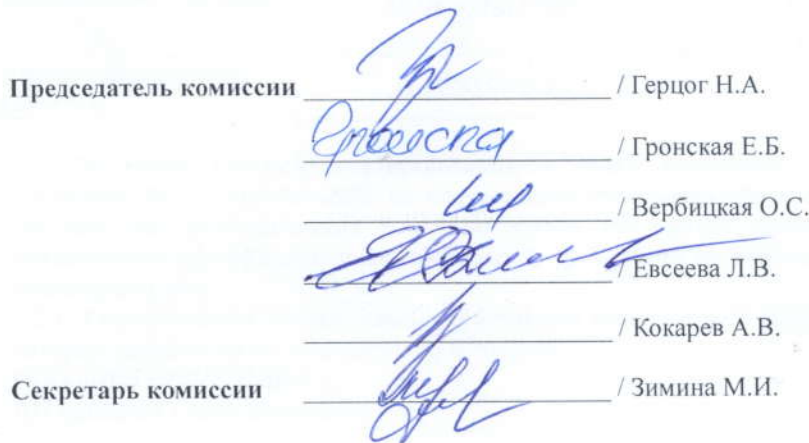 Председатель комиссии / Герцог Н.А.
/ Гронская Е.Б.
/ Вербицкая О.С.
/ Евсеева Л.В.
/ Кокарев А.В.
Секретарь комиссии / Зимина М.И.